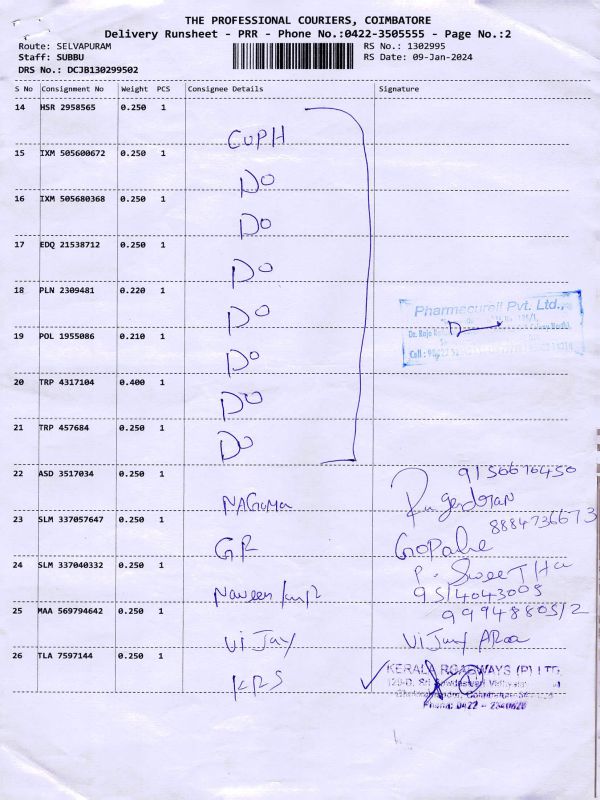 THE PROFESSIONAL COURIERS, COIMBATORE
Delivery Runsheet - PRR - Phone No.:0422-3505555 - Page No.:2
Route: SELVAPURAM
RS No.: 1302995
Staff: SUBBU
RS Date: 09-Jan-2024
DRS No.: DCJB130299502
S No Consignment No Weight PCS Consignee Details Signature
14 HSR 2958565 0.250 1
CUPH
15 IXM 505600672 0.250 1
DO
16 IXM 505680368 0.250 1
DO
17 EDQ 21538712 0.250 1
DO
18 PLN 2309481 0.220 1
Pharmecureil Pvt. Ltd.,
DO
19 POL 1955086 0.210 1
DO
20 TRP 4317104 0.400 1
DO
21 TRP 457684 0.250 1
DO
22 ASD 3517034 0.250 1
9156676450
23 SLM 337057647 0.250 1
8884736673
GR
24 SLM 337040332 0.250 1
P. SweeTHa
Naveen
9514043005
25 MAA 569794642 0.250 1
9994880512
Vijay Vijay
26 TLA 7597144 0.250 1
KERALA ROADWAYS (P) LTD.
KRS
Phone: 0422 -